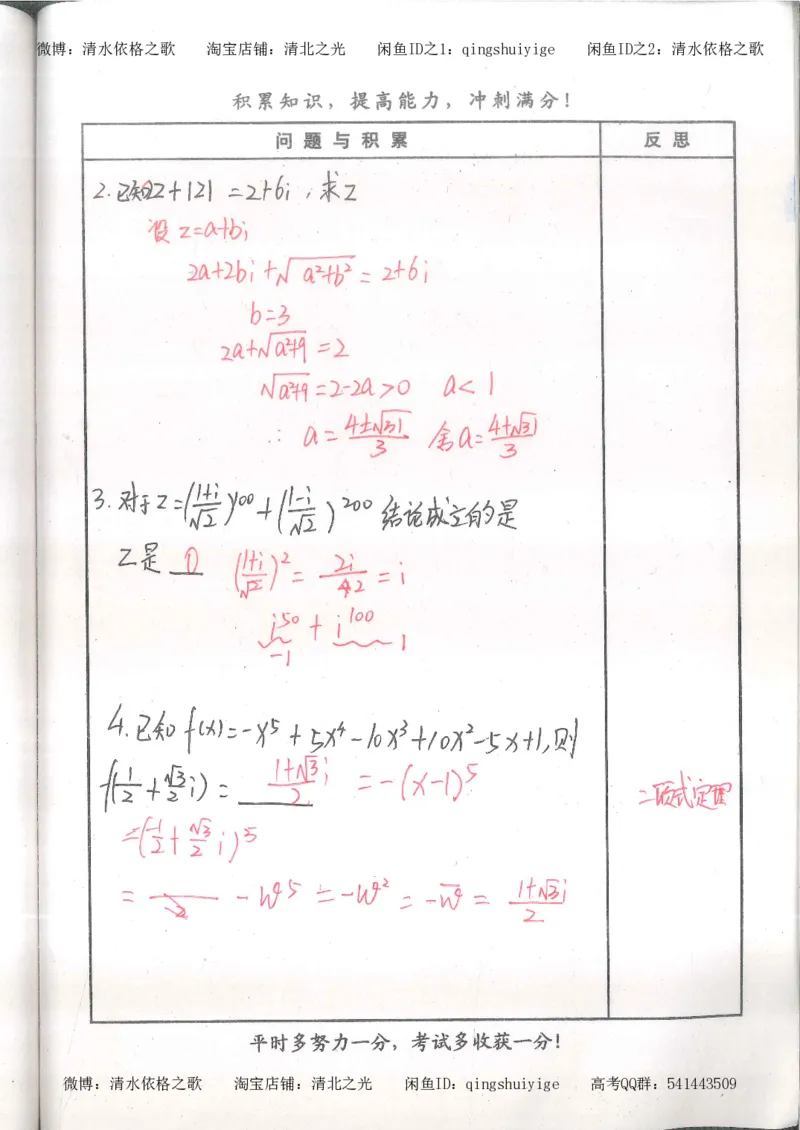 微博：清水依格之歌 淘宝店铺：清北之光 闲鱼ID之1：qingshuiyige 闲鱼ID之2：清水依格之歌
积累知识，提高能力，冲刺满分！
问题与积累 反思
2.已知2z+|z| =2+6i，求z
设 z=a+bi
2a+2bi+√(a²+b²) = 2+6i
b=3
2a+√(a²+9) =2
√(a²+9) =2-2a>0 a<1
∴ a= (4±√31)/3 舍a= (4+√31)/3
3.对于z=((1+i)/√2)¹⁰⁰+((1-i)/√2)²⁰⁰ 结论成立的是
Z是 0 ((1+i)/√2)² = 2i/2 = i
i⁵⁰ + i¹⁰⁰
-1 1
4.已知 f(x)=-x⁵+5x⁴-10x³+10x²-5x+1,则
f(1/2+√3/2 i) = (1+√3i)/2 =-(x-1)⁵
二项式定理
=-(-1/2+√3/2 i)⁵
= -W⁵ =-W² = -W̅ = (1+√3i)/2
平时多努力一分，考试多收获一分！
微博：清水依格之歌 淘宝店铺：清北之光 闲鱼ID：qingshuiyige 高考QQ群：541443509